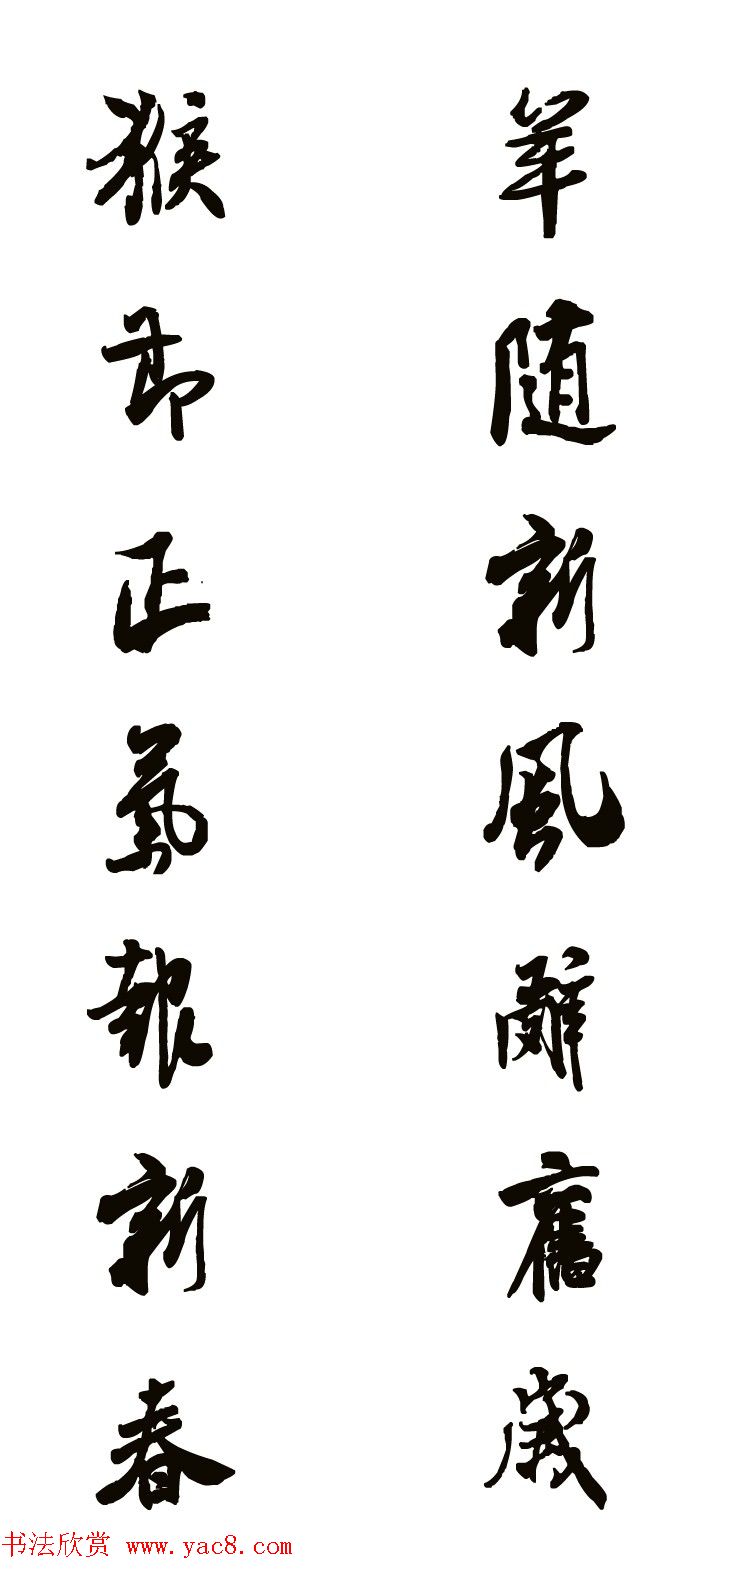 羊随新風辭舊歲
猴節正氣報新春
书法欣赏 www.yac8.com